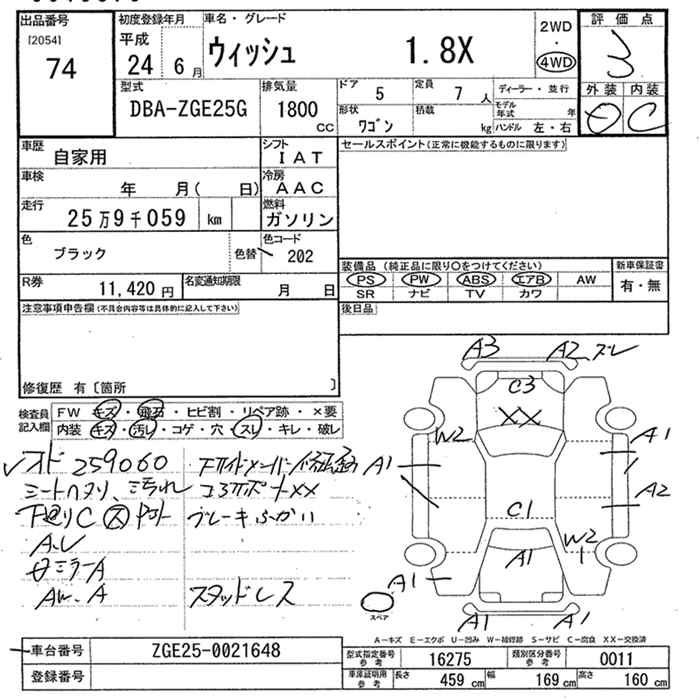 出品番号
[2054]
74
初度登録年月
平成
24 6月
車名・グレード
ウィッシュ 1.8X
2WD
4WD
評価点
3
外装 内装
C
型式
DBA-ZGE25G
排気量
1800 CC
ドア 5
定員 7 人
ディーラー・並行
形状 ワゴン
積載 kg
モデル年式 年
ハンドル 左・右
車歴
自家用
シフト
IAT
車検
年 月( 日)
冷房
AAC
走行
25万9千059 km
燃料
ガソリン
色
ブラック
色替
色コード
202
R券
11,420円
名変通知期限
月 日
セールスポイント(正常に機能するものに限ります)
装備品(純正品に限り〇をつけてください)
新車保証書
PS PW ABS エアB AW
有・無
SR ナビ TV カワ
後日品
注意事項申告欄(不具合内容等は具体的に記入して下さい)
修復歴 有〔箇所 〕
検査員記入欄
FW キズ・飛石・ヒビ割・リペア跡・×要
内装 キズ・汚レ・コゲ・穴・スレ・キレ・破レ
259060
シートヘタリ、汚れ
コアサポートXX
下廻りC
ミラーA
AW.A
スタッドレス
A3
A2
ズレ
C3
XX
W2
A1
A1
A2
C1
W2
A1
A1
A1
A1
スペア
A-キズ E-エクボ U-凹み W-補修跡 S-サビ C-腐食 XX-交換済
車台番号
ZGE25-0021648
登録番号
型式指定番号 参考
16275
類別区分番号 参考
0011
車庫証明用 参考
長さ 459 cm
幅 169 cm
高さ 160 cm